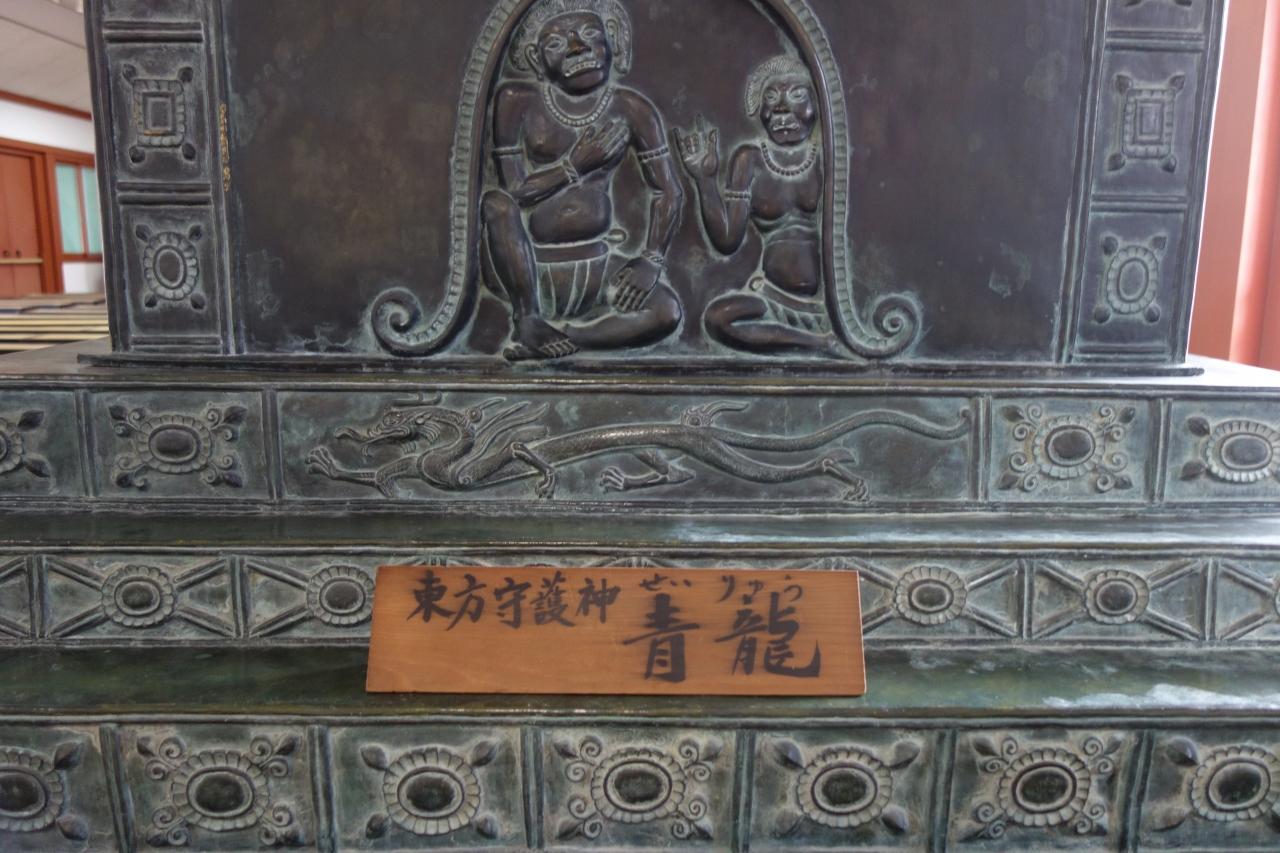 東方守護神 青龍
せいりゅう